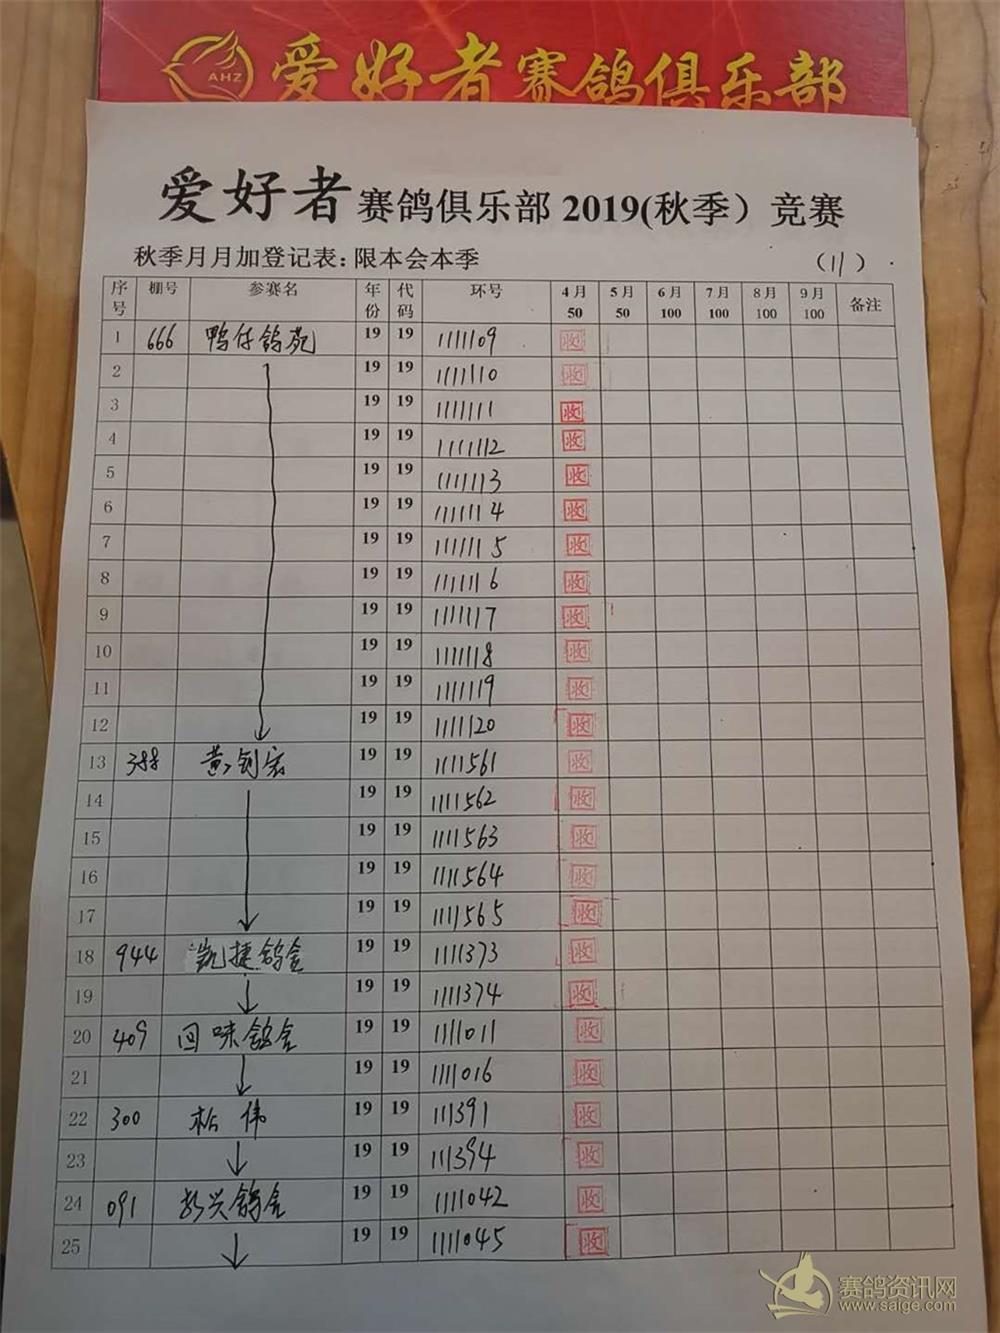 AHZ 爱好者赛鸽俱乐部
爱好者赛鸽俱乐部2019(秋季）竞赛
秋季月月加登记表：限本会本季 （11）
序号 棚号 参赛名 年份 代码 环号 4月50 5月50 6月100 7月100 8月100 9月100 备注
1 666 鸭仔鸽苑 19 19 1111109 收
2 19 19 1111110 收
3 19 19 1111111 收
4 19 19 1111112 收
5 19 19 1111113 收
6 19 19 1111114 收
7 19 19 1111115 收
8 19 19 1111116 收
9 19 19 1111117 收
10 19 19 1111118 收
11 19 19 1111119 收
12 19 19 1111120 收
13 388 黄钊宏 19 19 1111561 收
14 19 19 1111562 收
15 19 19 1111563 收
16 19 19 1111564 收
17 19 19 1111565 收
18 944 凯捷鸽舍 19 19 1111373 收
19 19 19 1111374 收
20 409 回味鸽舍 19 19 1111011 收
21 19 19 1111016 收
22 300 松伟 19 19 111391 收
23 19 19 111394 收
24 091 兴鸽舍 19 19 1111042 收
25 19 19 1111045 收
赛鸽资讯网
www.saige.com